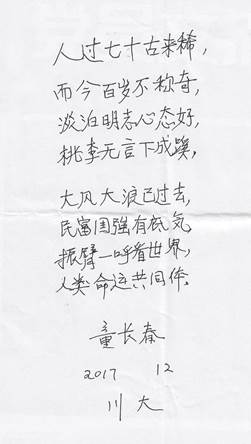 人过七十古来稀，
而今百岁不称奇，
淡泊明志心态好，
桃李无言下成蹊，
大风大浪已过去，
民富国强有底气
振臂一呼看世界，
人类命运共同体。
童长春
2017 12
川大